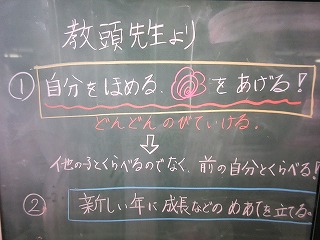 教頭先生より
① 自分をほめる、をあげる!
どんどんのびていける。
⇩
他の子とくらべるのでなく、前の自分とくらべる!
② 新しい年に成長などのめあてを立てる。